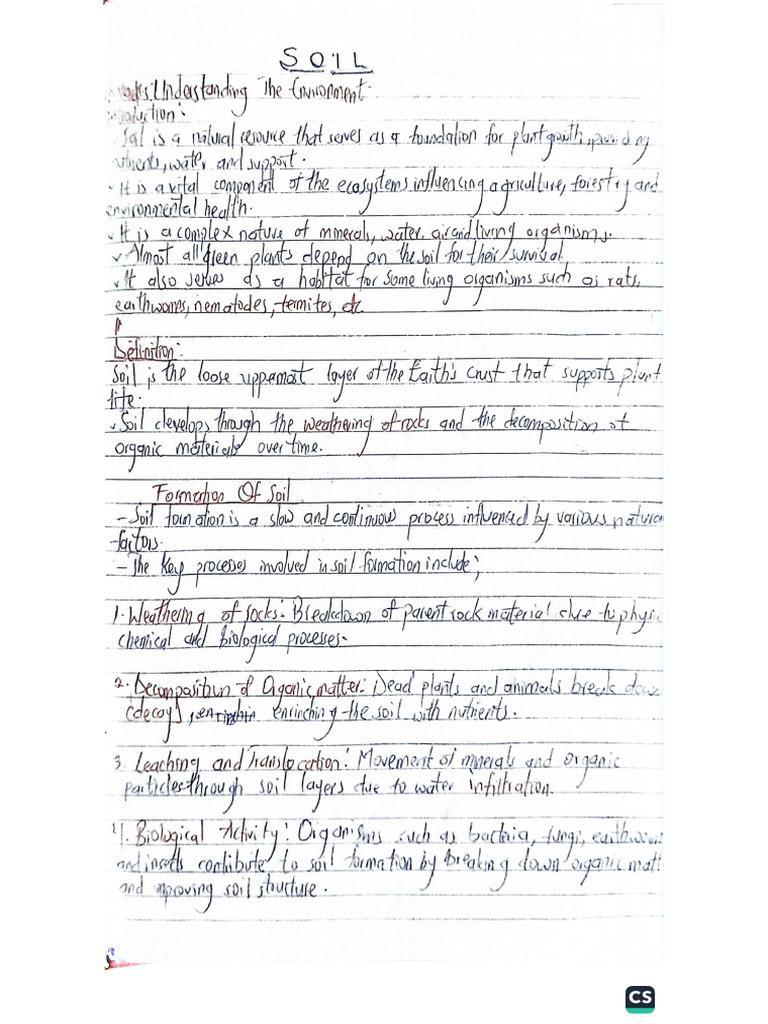 SOIL
Understanding The Environment
Introduction:
Soil is a natural resource that serves as a foundation for plant growth, providing
nutrients, water and support.
It is a vital component of the ecosystems influencing agriculture, forestry and
environmental health.
It is a complex nature of minerals, water, air and living organisms.
Almost all green plants depend on the soil for their survival.
It also serves as a habitat for some living organisms such as rats,
earthworms, nematodes, termites, etc
Definition:
Soil is the loose uppermost layer of the Earth's crust that supports plant
life.
Soil develops through the weathering of rocks and the decomposition of
organic materials over time.
Formation Of Soil
- Soil formation is a slow and continuous process influenced by various natural
factors.
- The key processes involved in soil formation include;
1. Weathering of rocks: Breakdown of parent rock material due to physic
chemical and Biological processes.
2. Decomposition of Organic matter: Dead plants and animals break down
(decay), enrinching the soil with nutrients.
3. Leaching and Translocation: Movement of minerals and organic
particles through soil layers due to water infiltration.
4. Biological Activity: Organisms such as bacteria, fungi, earthworms
and insects contribute to soil formation by breaking down organic matt
and improving soil structure.
CS